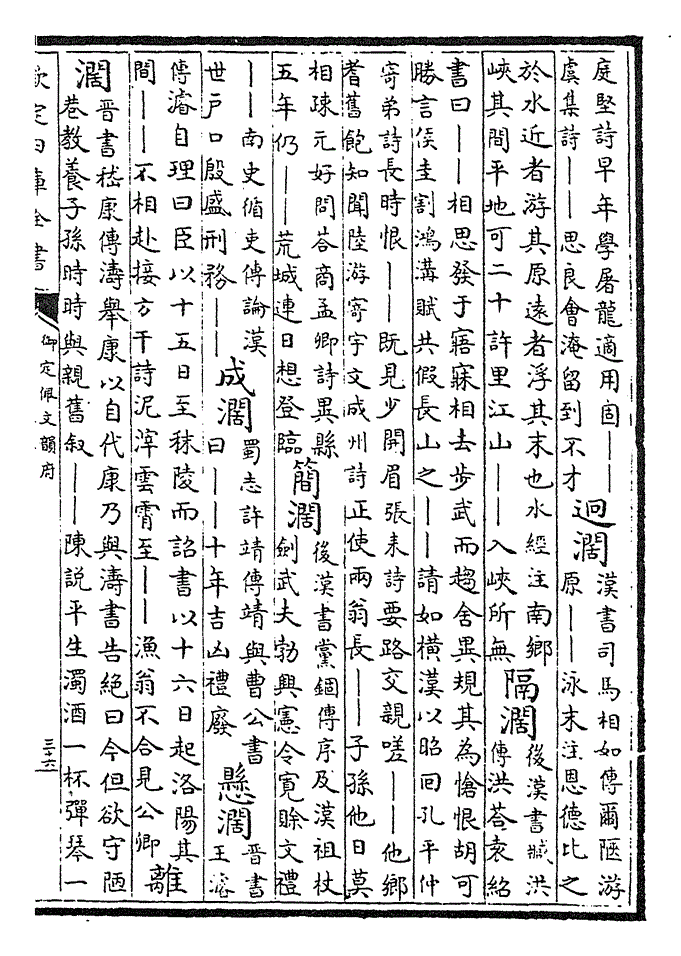 庭堅詩早年學屠龍適用固丨丨
虞集詩丨丨思良會淹留到不才
迥濶
漢書司馬相如傳爾陿游
原丨丨泳末注恩德比之
於水近者游其原遠者浮其末也水經注南鄉
峽其間平地可二十許里江山丨丨入峽所無
隔濶
後漢書臧洪
傳洪荅袁紹
書曰丨丨相思發于寤寐相去步武而趨舍異規其為愴恨胡可
勝言侯圭割鴻溝賦共假長山之丨丨請如橫漢以昭回孔平仲
寄弟詩長時恨丨丨既見少開眉張耒詩要路交親嗟丨丨他鄉
耆舊飽知聞陸游寄宇文成州詩正使兩翁長丨丨子孫他日莫
相疎元好問荅商孟卿詩異縣
五年仍丨丨荒城連日想登臨
簡濶
後漢書黨錮傳序及漢祖杖
劍武夫勃興憲令寬賒文禮
丨丨南史循吏傳論漢
世戸口殷盛刑務丨丨
成濶
蜀志許靖傳靖與曹公書
曰丨丨十年吉凶禮廢
懸濶
晉書
王濬
傳濬自理曰臣以十五日至秣陵而詔書以十六日起洛陽其
間丨丨不相赴接方干詩泥滓雲霄至丨丨漁翁不合見公卿
離
濶
晉書嵇康傳濤舉康以自代康乃與濤書告絕曰今但欲守陋
巷教養子孫時時與親舊叙丨丨陳說平生濁酒一杯彈琴一
欽定四庫全書
御定佩文韻府
三十六